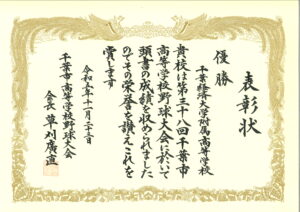 表彰状
優勝
千葉経済大学附属高等学校
貴校は第三十八回千葉市
高等学校野球大会に於いて
頭書の成績を収められました
のでその栄誉を讃えこれを
賞します
令和五年十一月二十三日
千葉市高等学校野球大会
会長 草刈廣直